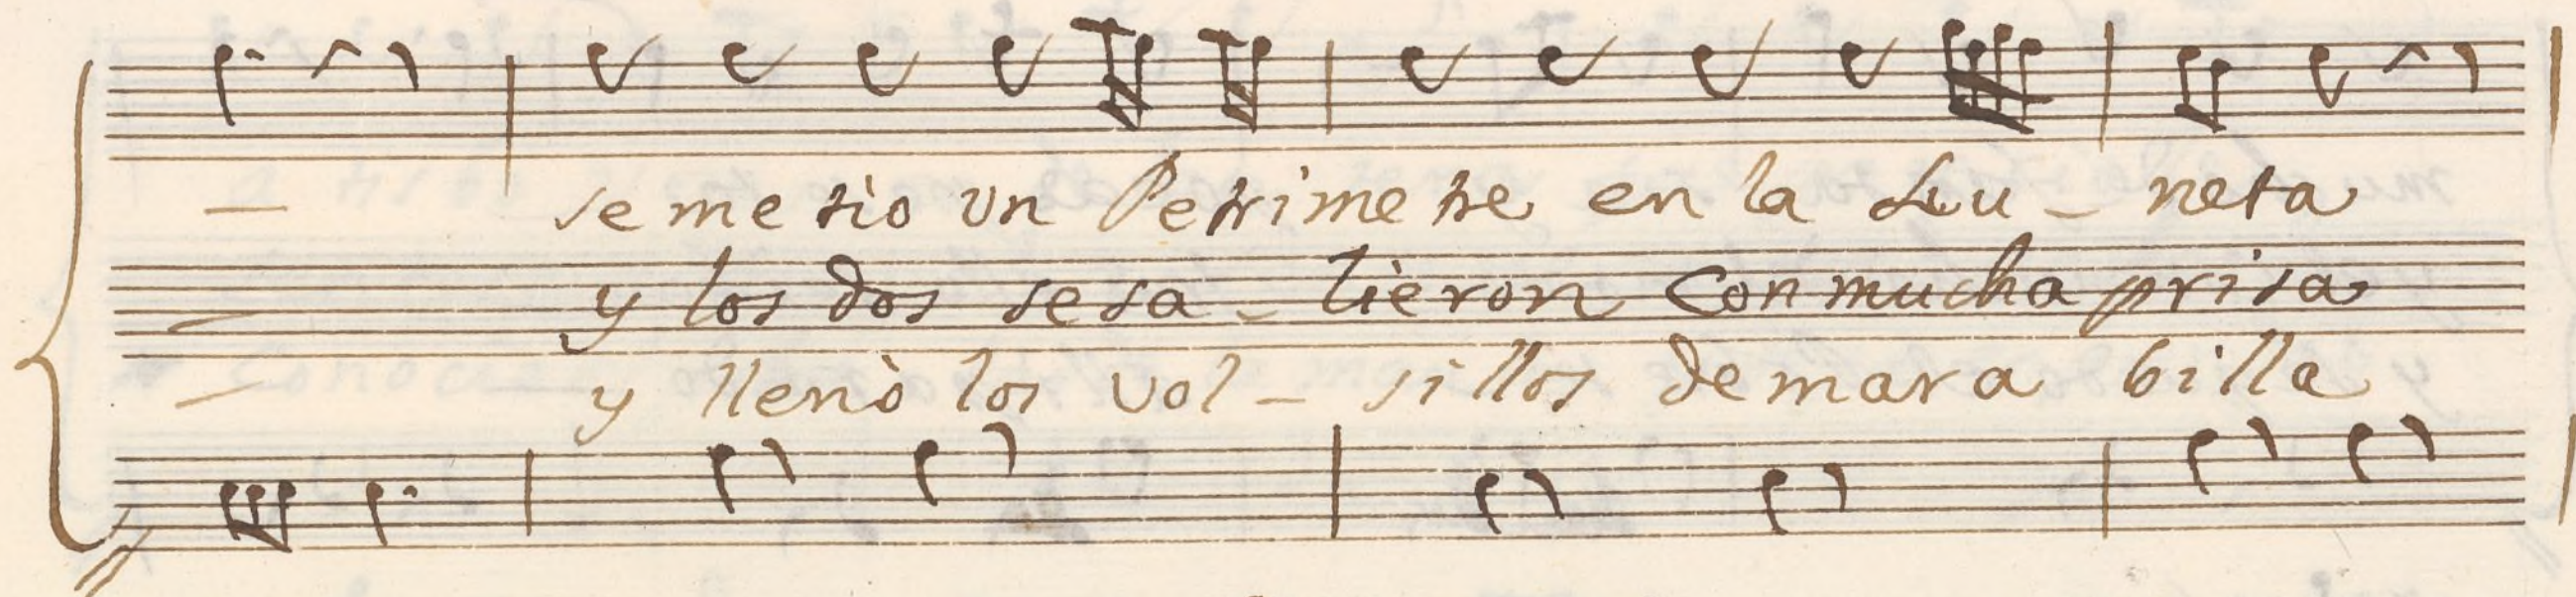 se me tiò un Petrime tre en la Lu - neta
y los dos se sa - lièron Con mucha prisa
y llenò los vol - sillos de mara billa